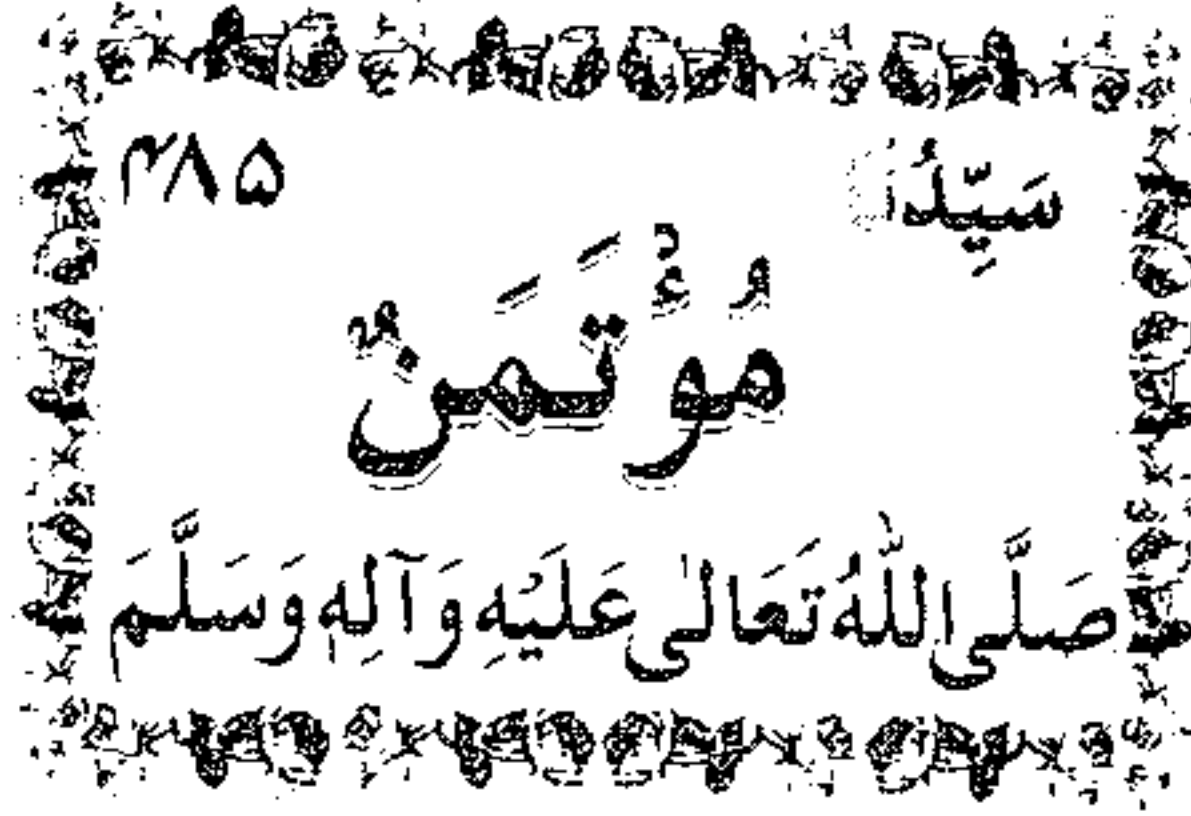 سَيِّدُنَا ۴۸۵
مُؤْتَمَنٌ
صَلَّى اللّٰهُ تَعَالٰى عَلَيْهِ وَآلِهٖ وَسَلَّمَ